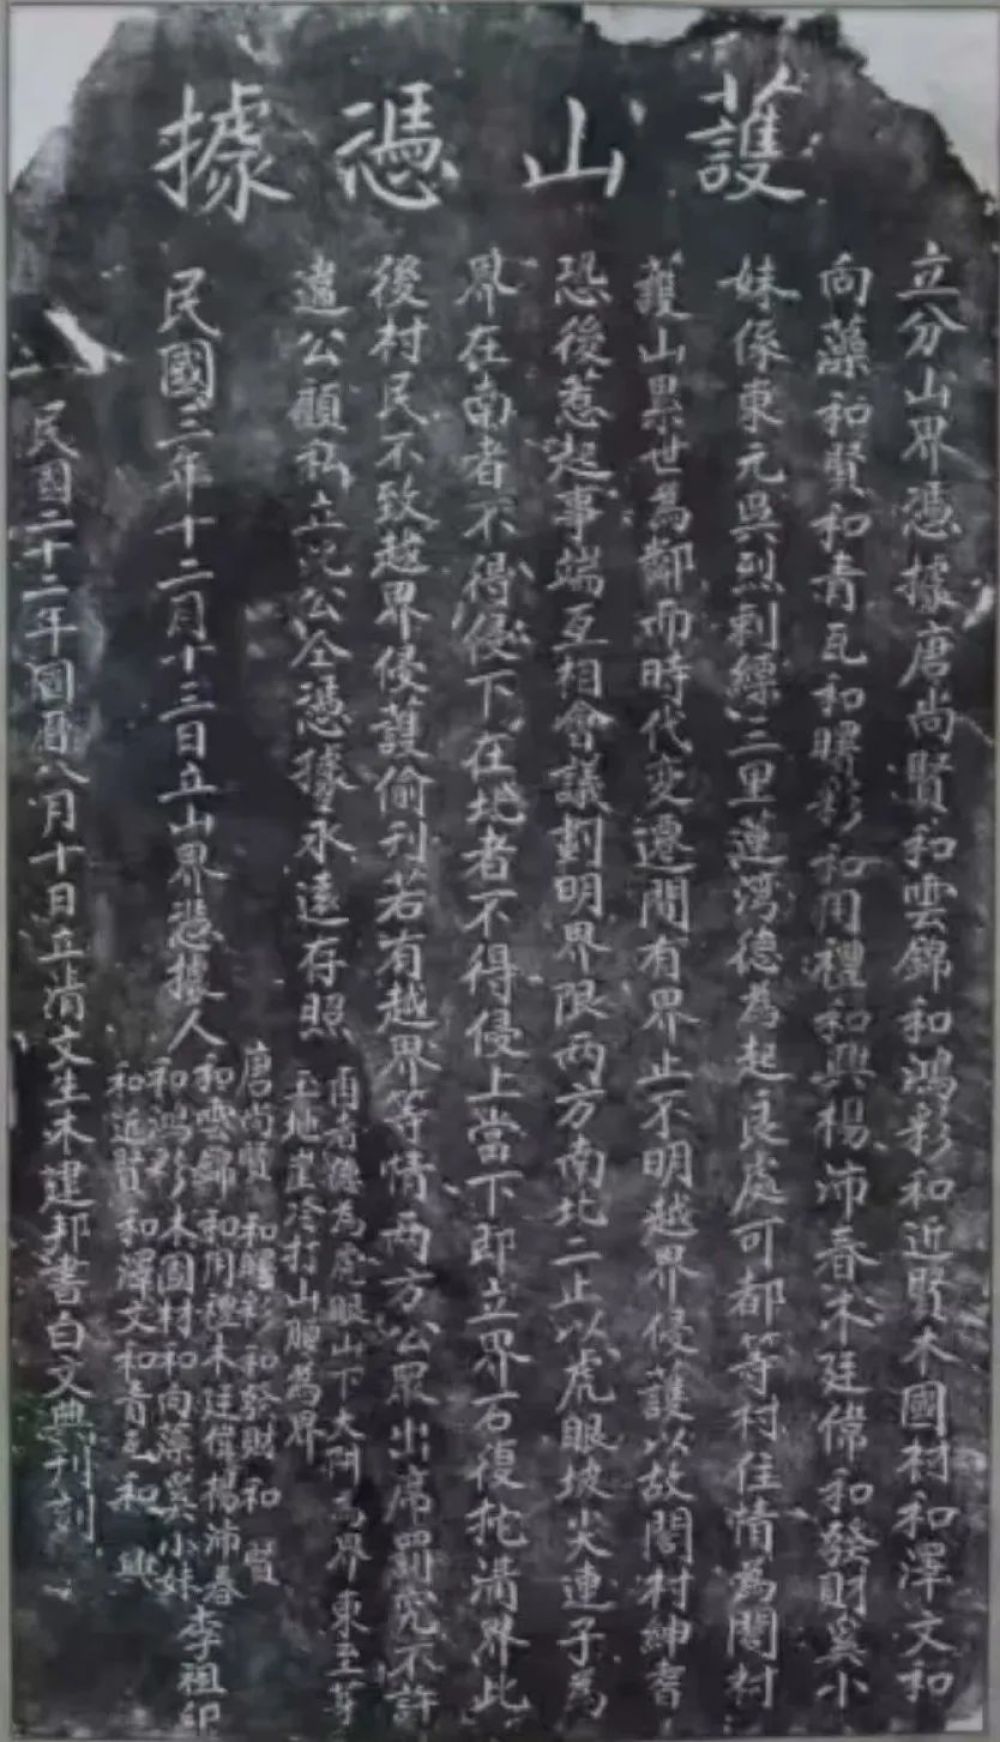 護山憑據
立分山界憑據唐尚賢和雲錦和鴻彩和近賢木國材和澤文和
向藻和賢和青瓦和曙彩和用禮和興楊沛春木廷偉和發財吳小
妹係東元吳烈剌縹三里蓮灣德為起良處可都等村住情為闔村
護山累世為鄰而時代变遷間有界止不明越界侵護以故闔村紳耆
恐後惹起事端互相會議劃明界限两方南北二止以虎眼坡尖連子為
界在南者不得侵下在北者不得侵上當下即立界石復扥清界此
後村民不致越界侵護偷刊若有越界等情两方公眾出席罰究不許
遺公顧私立此公仝憑據永遠存照
酉者德為虎眼山下大阱為界東至芽
玉地崖冷打山頭為界
民國三年十二月十三日立山界憑據人
唐尚賢 和曙彩 和發財 和賢
和雲錦 和用禮 木廷偉 楊沛春
和鴻彩 木國材 和向藻 吳小妹 李祖印
和近賢 和澤文 和青瓦 和興
民国二十二年國曆八月十日立清文生木建邦書白文典刊刻